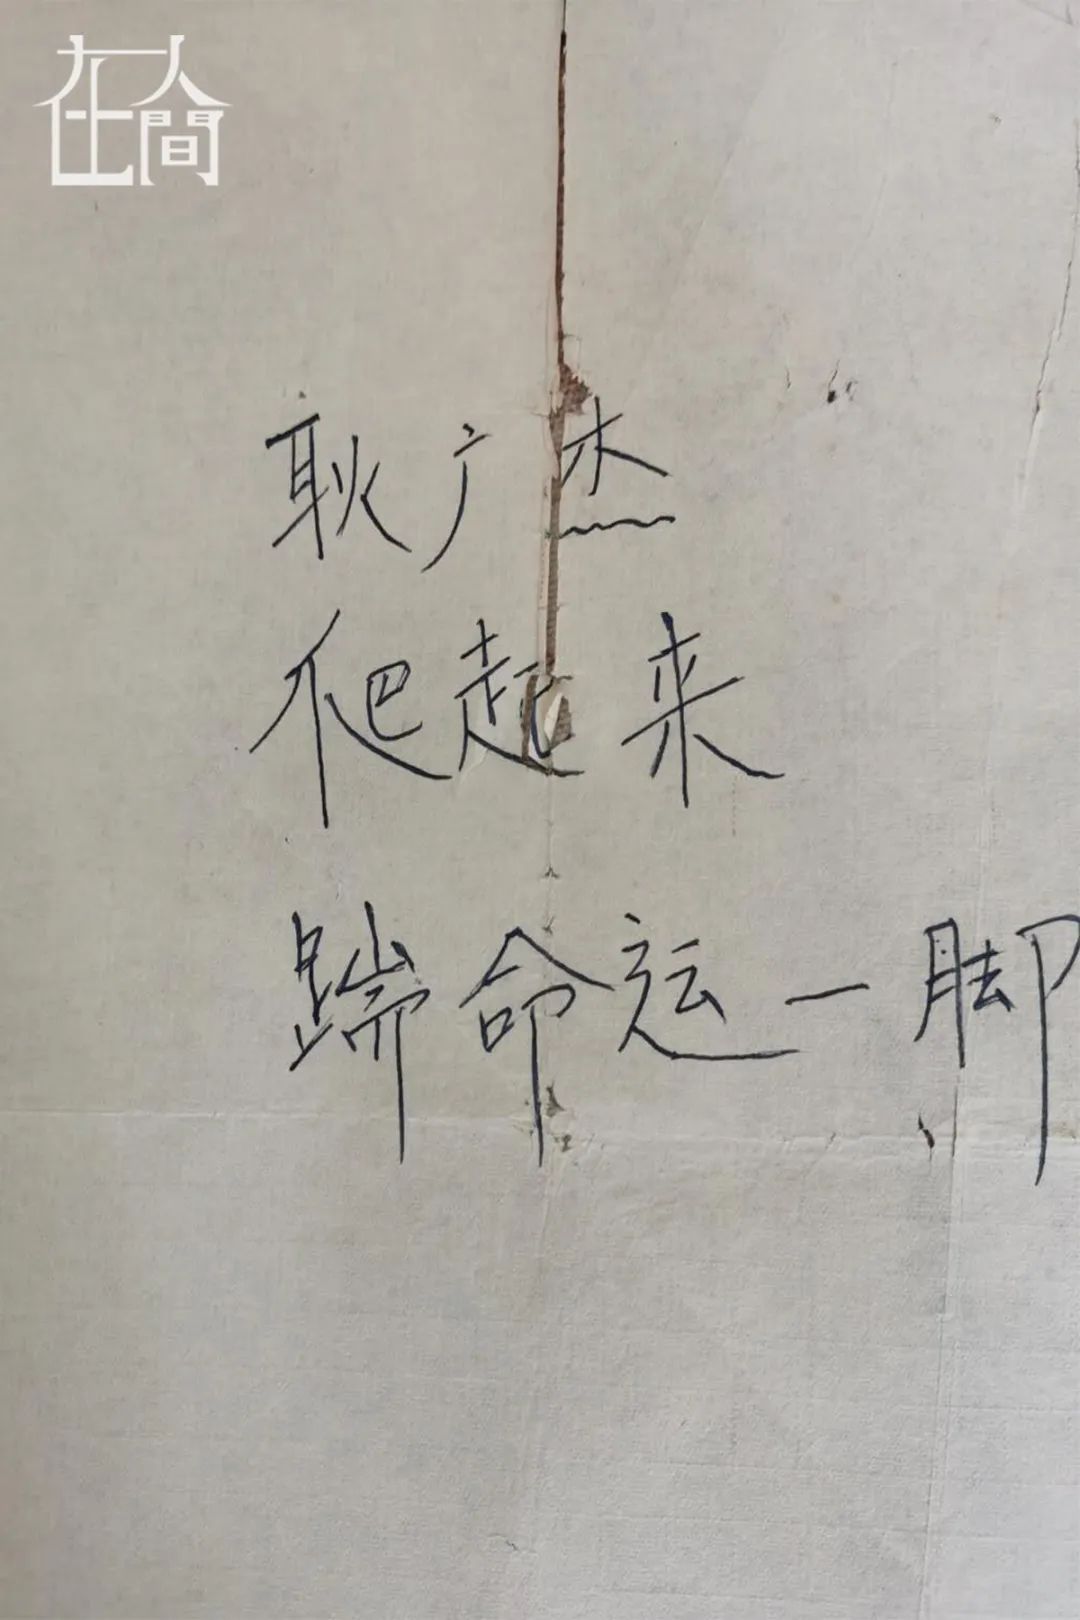 在人間
耿广杰
爬起来
踹命运一脚